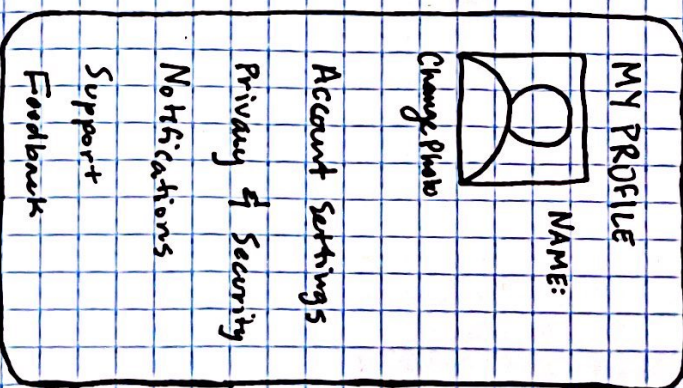 MY PROFILE
NAME:
Change Photo
Account Settings
Privacy & Security
Notifications
Support
Feedback